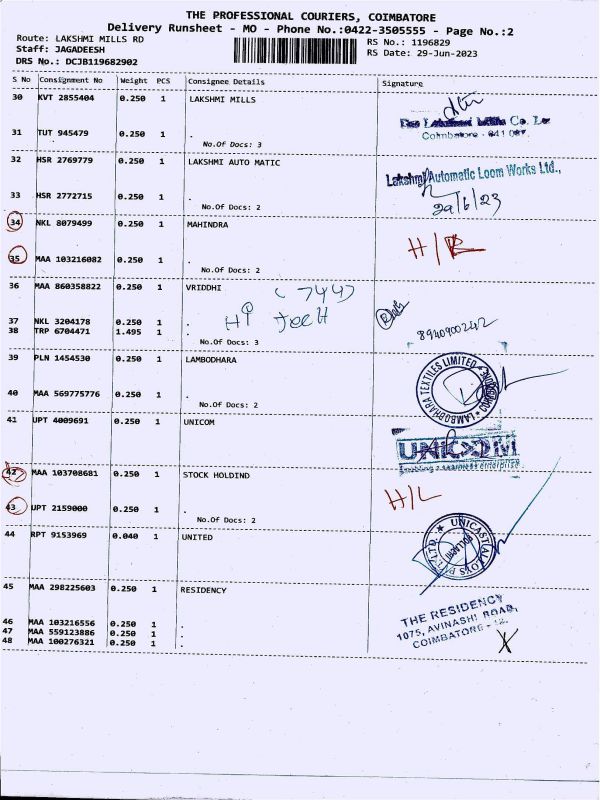 THE PROFESSIONAL COURIERS, COIMBATORE
Delivery Runsheet - MO - Phone No.:0422-3505555 - Page No.:2
Route: LAKSHMI MILLS RD
RS No.: 1196829
Staff: JAGADEESH
RS Date: 29-Jun-2023
DRS No.: DCJB119682902
S No Consignment No Weight PCS Consignee Details Signature
30 KVT 2855404 0.250 1 LAKSHMI MILLS
31 TUT 945479 0.250 1 .
Coimbatore - 641 037.
No.Of Docs: 3
32 HSR 2769779 0.250 1 LAKSHMI AUTO MATIC
Lakshmi Automatic Loom Works Ltd.,
33 HSR 2772715 0.250 1 .
29/6/23
No.Of Docs: 2
34 NKL 8079499 0.250 1 MAHINDRA
35 MAA 103216082 0.250 1 .
No.Of Docs: 2
36 MAA 860358822 0.250 1 VRIDDHI
(744)
37 NKL 3204178 0.250 1 .
Hi Tech
38 TRP 6704471 1.495 1 .
No.Of Docs: 3
39 PLN 1454530 0.250 1 LAMBODHARA
LAMBODHARA TEXTILES LIMITED
40 MAA 569775776 0.250 1 .
No.Of Docs: 2
41 UPT 4009691 0.250 1 UNICOM
UNICOM
Enabling a seamless enterprise
42 MAA 103708681 0.250 1 STOCK HOLDIND
H/L
43 UPT 2159000 0.250 1 .
No.Of Docs: 2
44 RPT 9153969 0.040 1 UNITED
45 MAA 298225603 0.250 1 RESIDENCY
THE RESIDENCY
1075, AVINASHI ROAD,
COIMBATORE - 18.
46 MAA 103216556 0.250 1 .
47 MAA 559123886 0.250 1 .
48 MAA 100276321 0.250 1 .